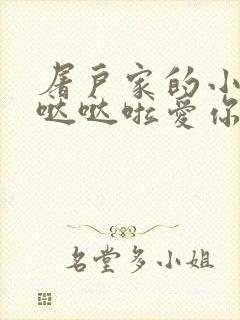 屠户家的小
哒哒啦爱你
名堂多小姐